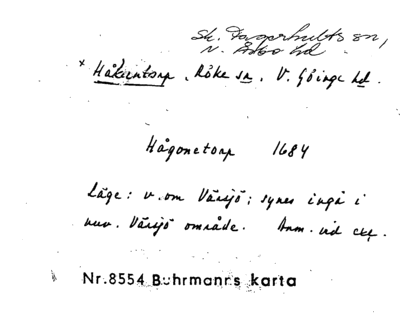 Sk. Fagerhults sn,
N. Åsbo hd
x Håkantorp, Röke sn, V. Göinge hd.
Hågonetorp 1684
Läge: v. om Värsjö; synes ingå i
nuv. Värsjö område. Anm. vid
Nr. 8554 Buhrmanns karta